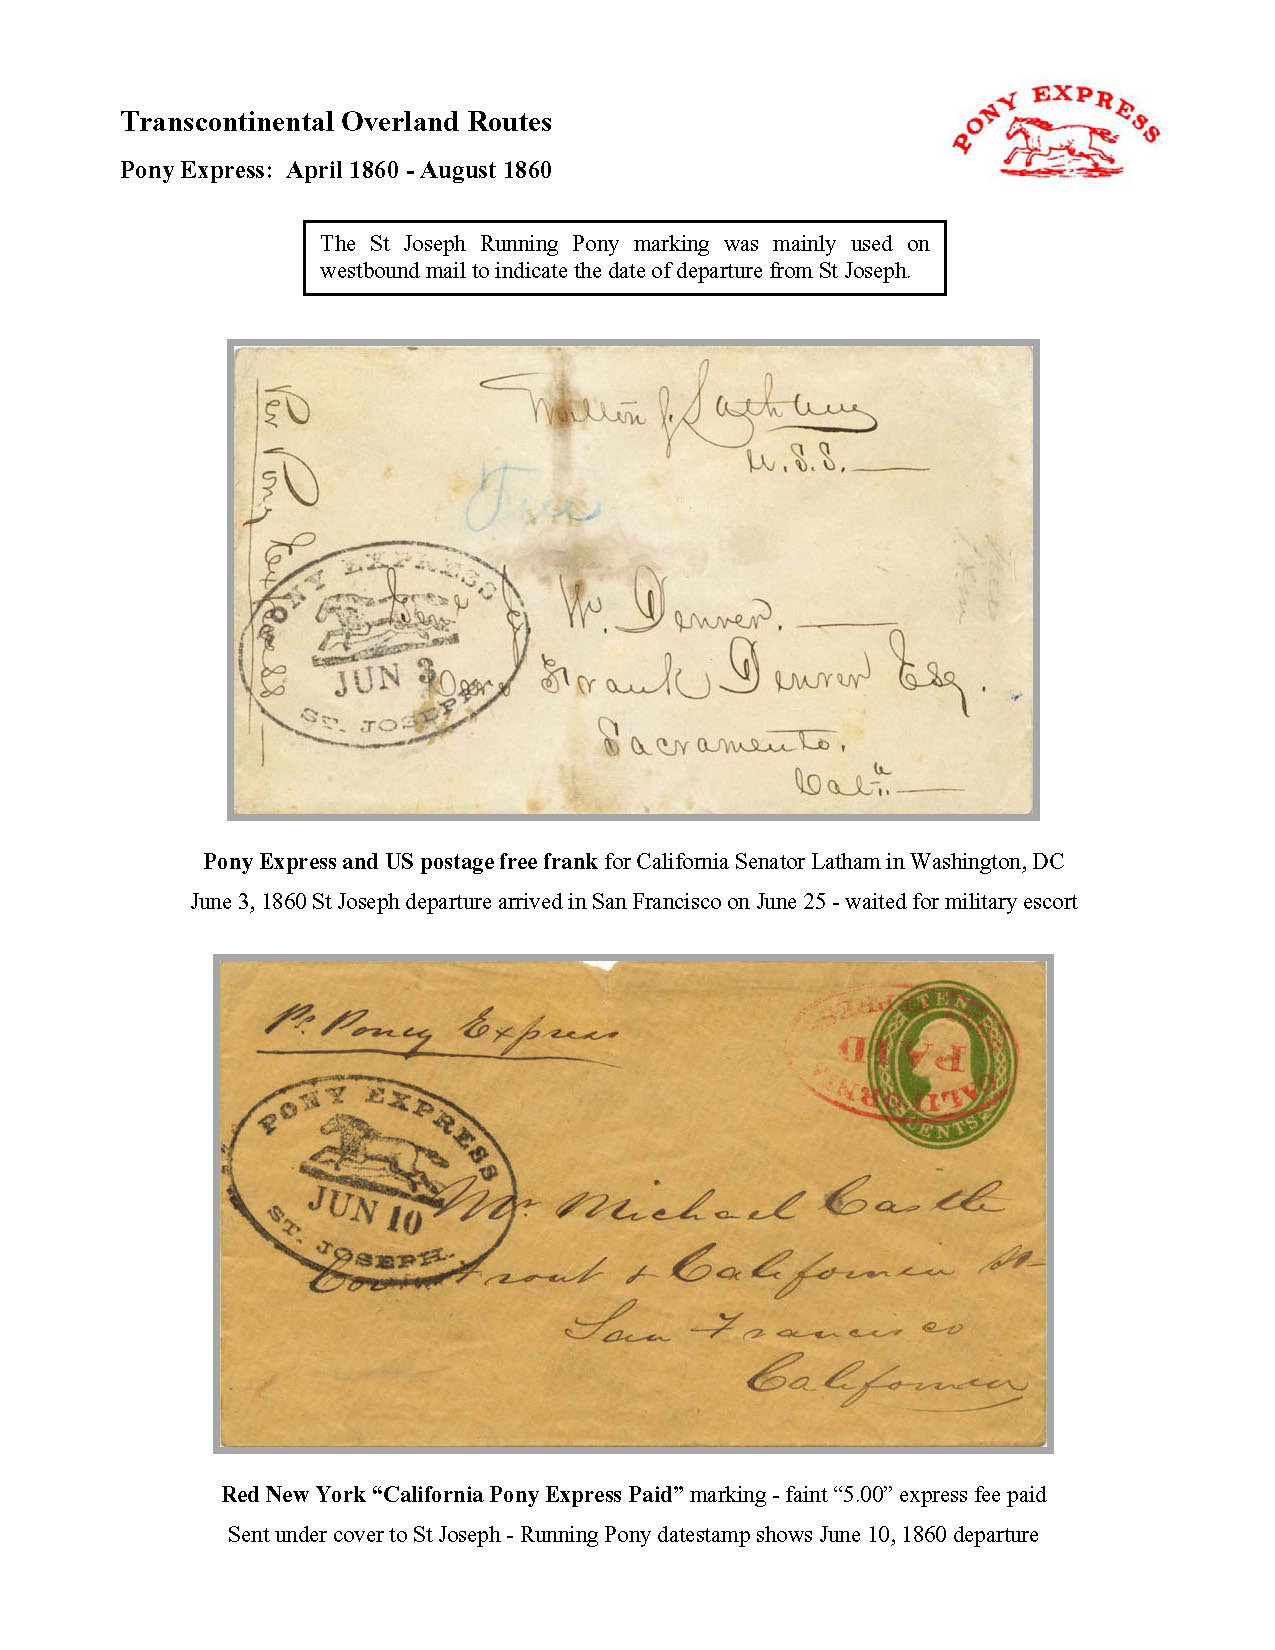 Transcontinental Overland Routes
PONY EXPRESS
Pony Express: April 1860 - August 1860
The St Joseph Running Pony marking was mainly used on
westbound mail to indicate the date of departure from St Joseph.
Milton J. Latham
U.S.S.
Per Pony Express
Free
PONY EXPRESS
JUN 3
ST. JOSEPH
Genl J. W. Denver.
Care Frank Denver Esq.
Sacramento.
Cala
Pony Express and US postage free frank for California Senator Latham in Washington, DC
June 3, 1860 St Joseph departure arrived in San Francisco on June 25 - waited for military escort
Pr. Poney Express
TEN
CENTS
CALIFORNIA
PAID
PONY EXPRESS
JUN 10
ST. JOSEPH.
Mr. Michael Castle
Cor Front & California St
San Francisco
California
Red New York “California Pony Express Paid” marking - faint “5.00” express fee paid
Sent under cover to St Joseph - Running Pony datestamp shows June 10, 1860 departure